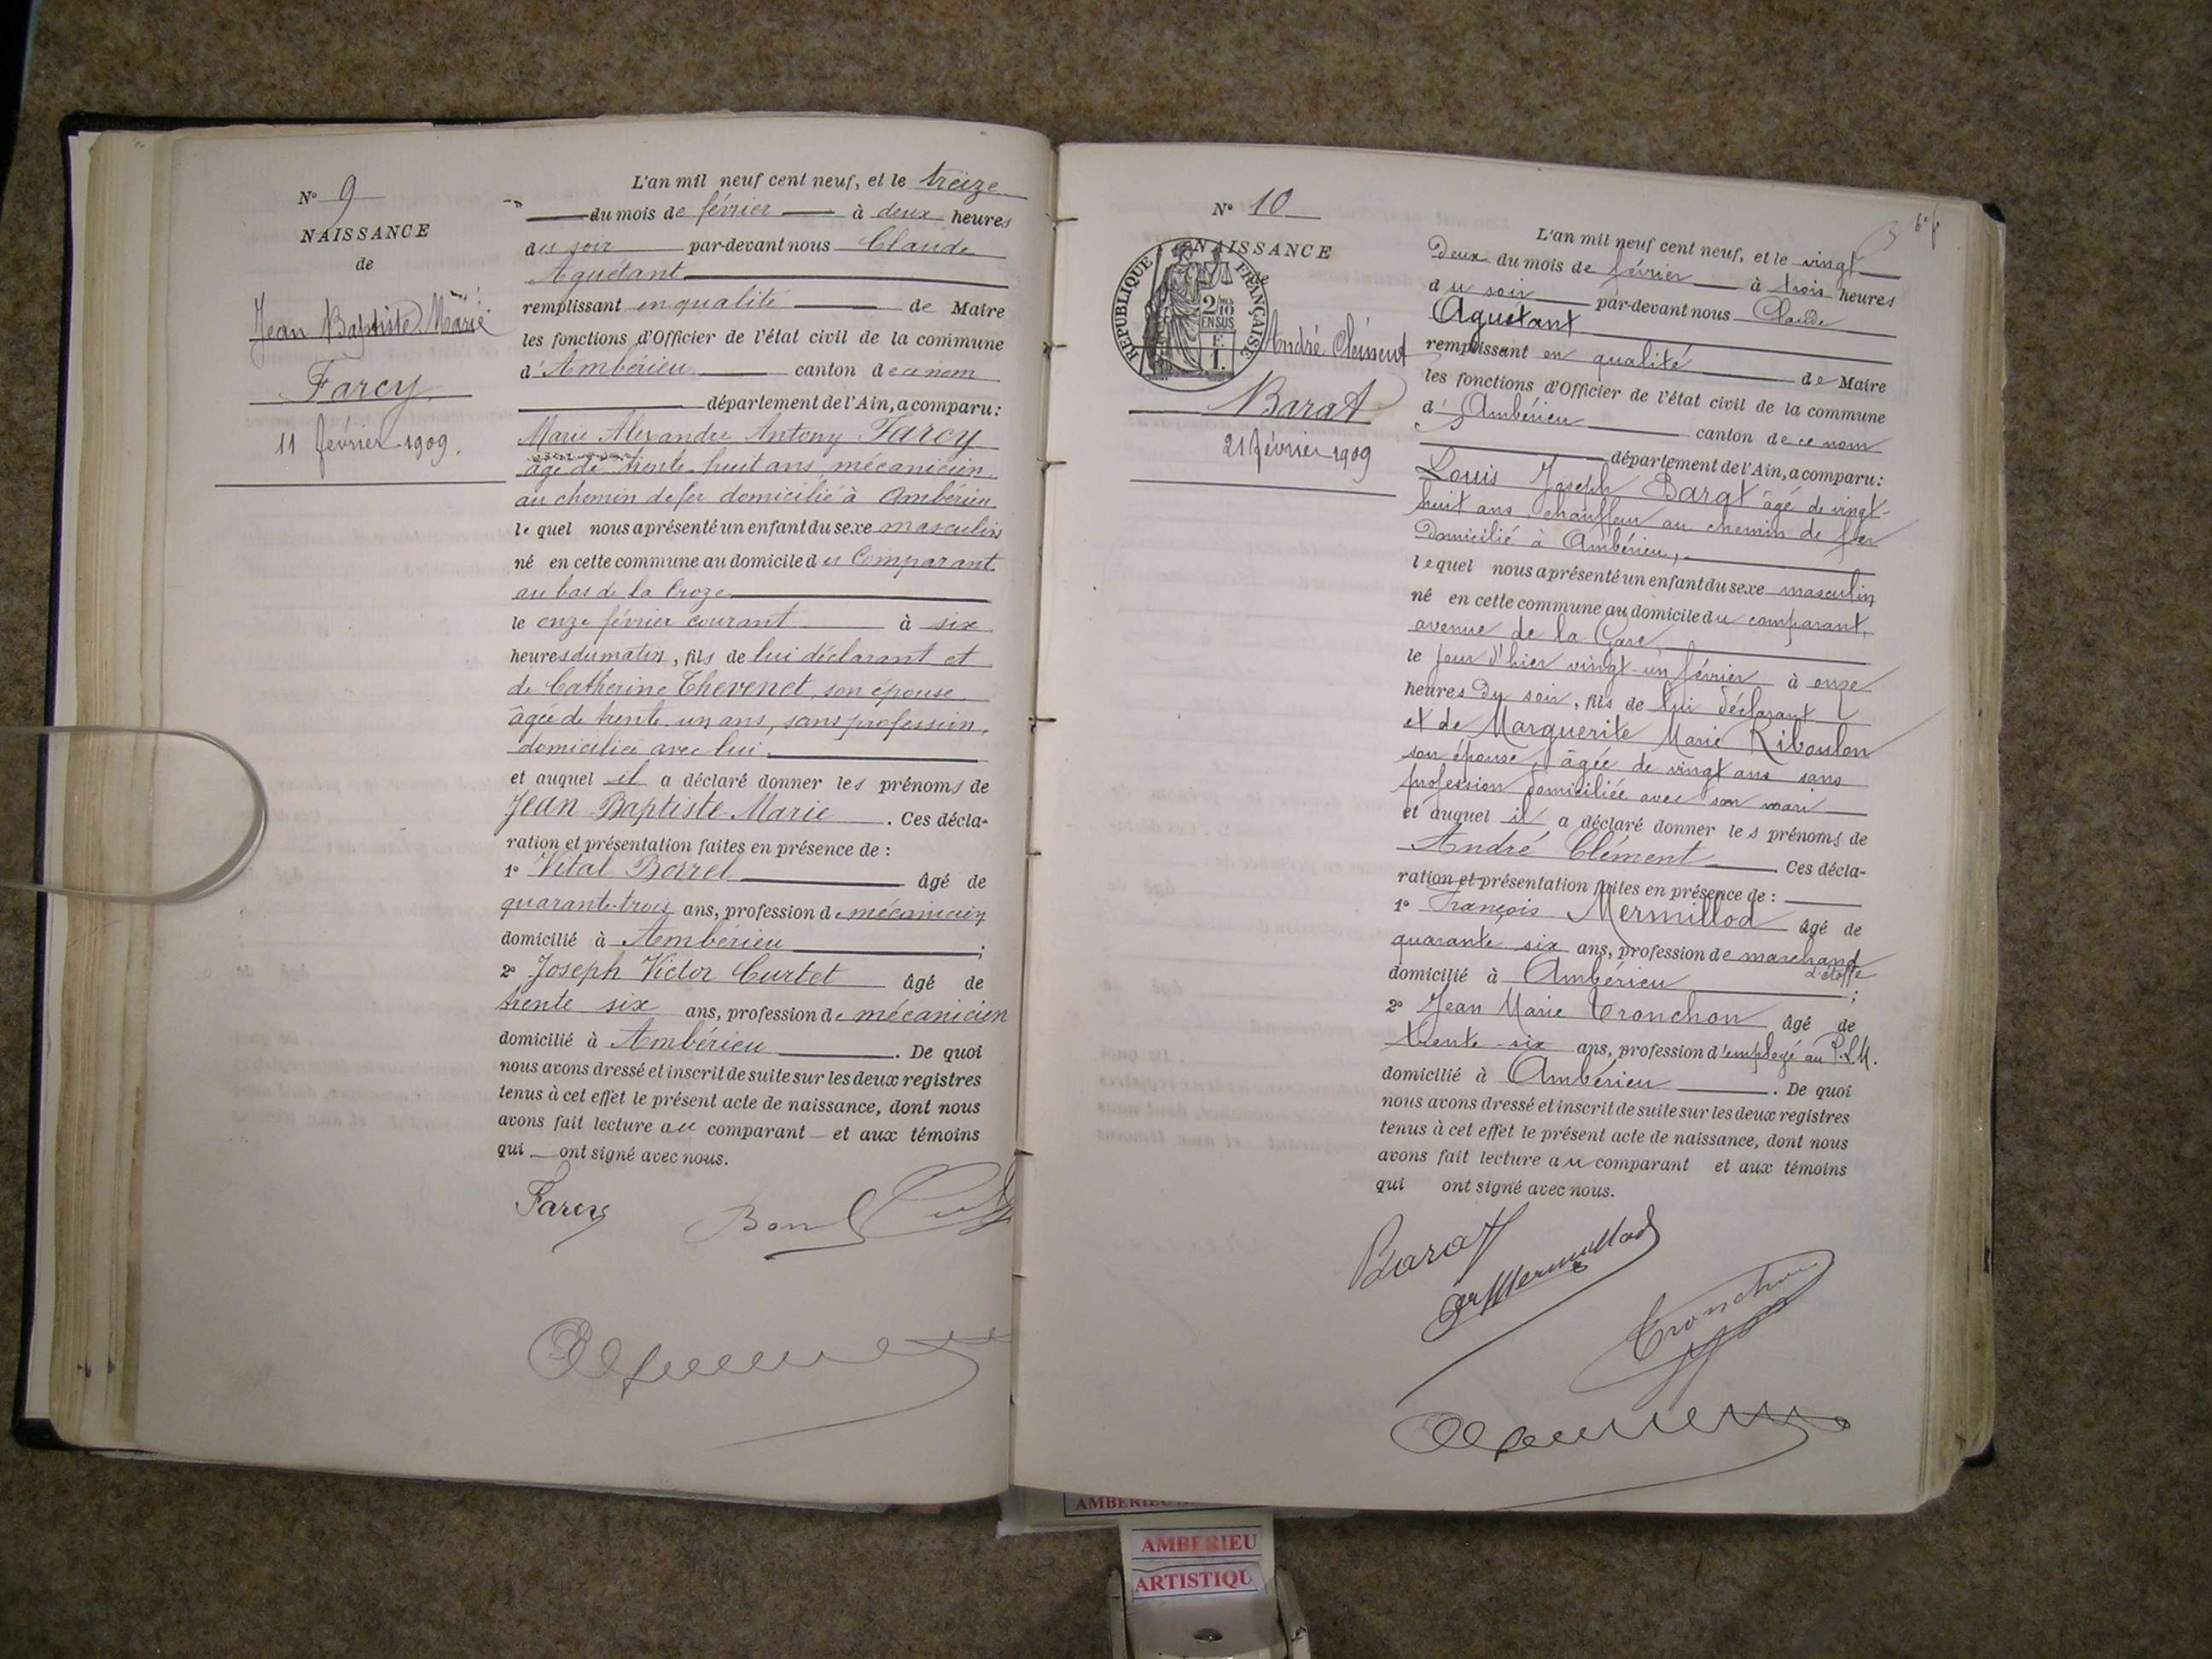 N° 9
NAISSANCE
de
Jean Baptiste Marie
Farcy
11 février 1909.
L'an mil neuf cent neuf, et le treize
du mois de février à deux heures
du soir par-devant nous Claude
Aguétant
remplissant en qualité de Maire
les fonctions d'Officier de l'état civil de la commune
d'Ambérieu canton de ce nom
département de l'Ain, a comparu :
Marie Alexandre Antony Farcy
âgé de trente huit ans mécanicien
au chemin de fer domicilié à Ambérieu
lequel nous a présenté un enfant du sexe masculin
né en cette commune au domicile du Comparant
au bas de la Croze
le onze février courant à six
heures du matin, fils de lui déclarant et
de Catherine Thevenet son épouse
âgée de trente un ans, sans profession,
domiciliée avec lui.
et auquel il a déclaré donner les prénoms de
Jean Baptiste Marie . Ces décla-
ration et présentation faites en présence de :
1° Vital Borrel âgé de
quarante-trois ans, profession de mécanicien
domicilié à Ambérieu ;
2° Joseph Victor Curtet âgé de
trente six ans, profession de mécanicien
domicilié à Ambérieu . De quoi
nous avons dressé et inscrit de suite sur les deux registres
tenus à cet effet le présent acte de naissance, dont nous
avons fait lecture au comparant et aux témoins
qui ont signé avec nous.
Farcy
N° 10
NAISSANCE
de
RÉPUBLIQUE FRANÇAISE
2/10
EN SUS
F.
1.
André Clément
Barat
21 février 1909
L'an mil neuf cent neuf, et le vingt
Deux du mois de février à trois heures
du soir par-devant nous Claude
Aguétant
remplissant en qualité de Maire
les fonctions d'Officier de l'état civil de la commune
d'Ambérieu canton de ce nom
département de l'Ain, a comparu :
Louis Joseph Barat âgé de vingt-
huit ans, chauffeur au chemin de fer
Domicilié à Ambérieu,
lequel nous a présenté un enfant du sexe masculin
né en cette commune au domicile du comparant,
avenue de la Gare
le jour d'hier vingt-un février à onze
heures du soir, fils de lui déclarant
et de Marguerite Marie Riboulon
son épouse, âgée de vingt ans sans
profession domiciliée avec son mari
et auquel il a déclaré donner les prénoms de
André Clément Ces décla-
ration et présentation faites en présence de :
1° François Mermillod âgé de
quarante six ans, profession de marchand
d'étoffe
domicilié à Ambérieu ;
2° Jean Marie Tronchon âgé de
trente-six ans, profession d'employé au P.L.M.
domicilié à Ambérieu . De quoi
nous avons dressé et inscrit de suite sur les deux registres
tenus à cet effet le présent acte de naissance, dont nous
avons fait lecture au comparant et aux témoins
qui ont signé avec nous.
Barat
Mermillod
Tronchon
AMBERIEU
ARTISTIQU